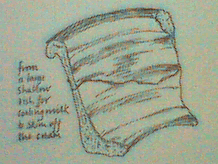 from
a large
shallow
dish, for
cooling milk
to skim off
the cream